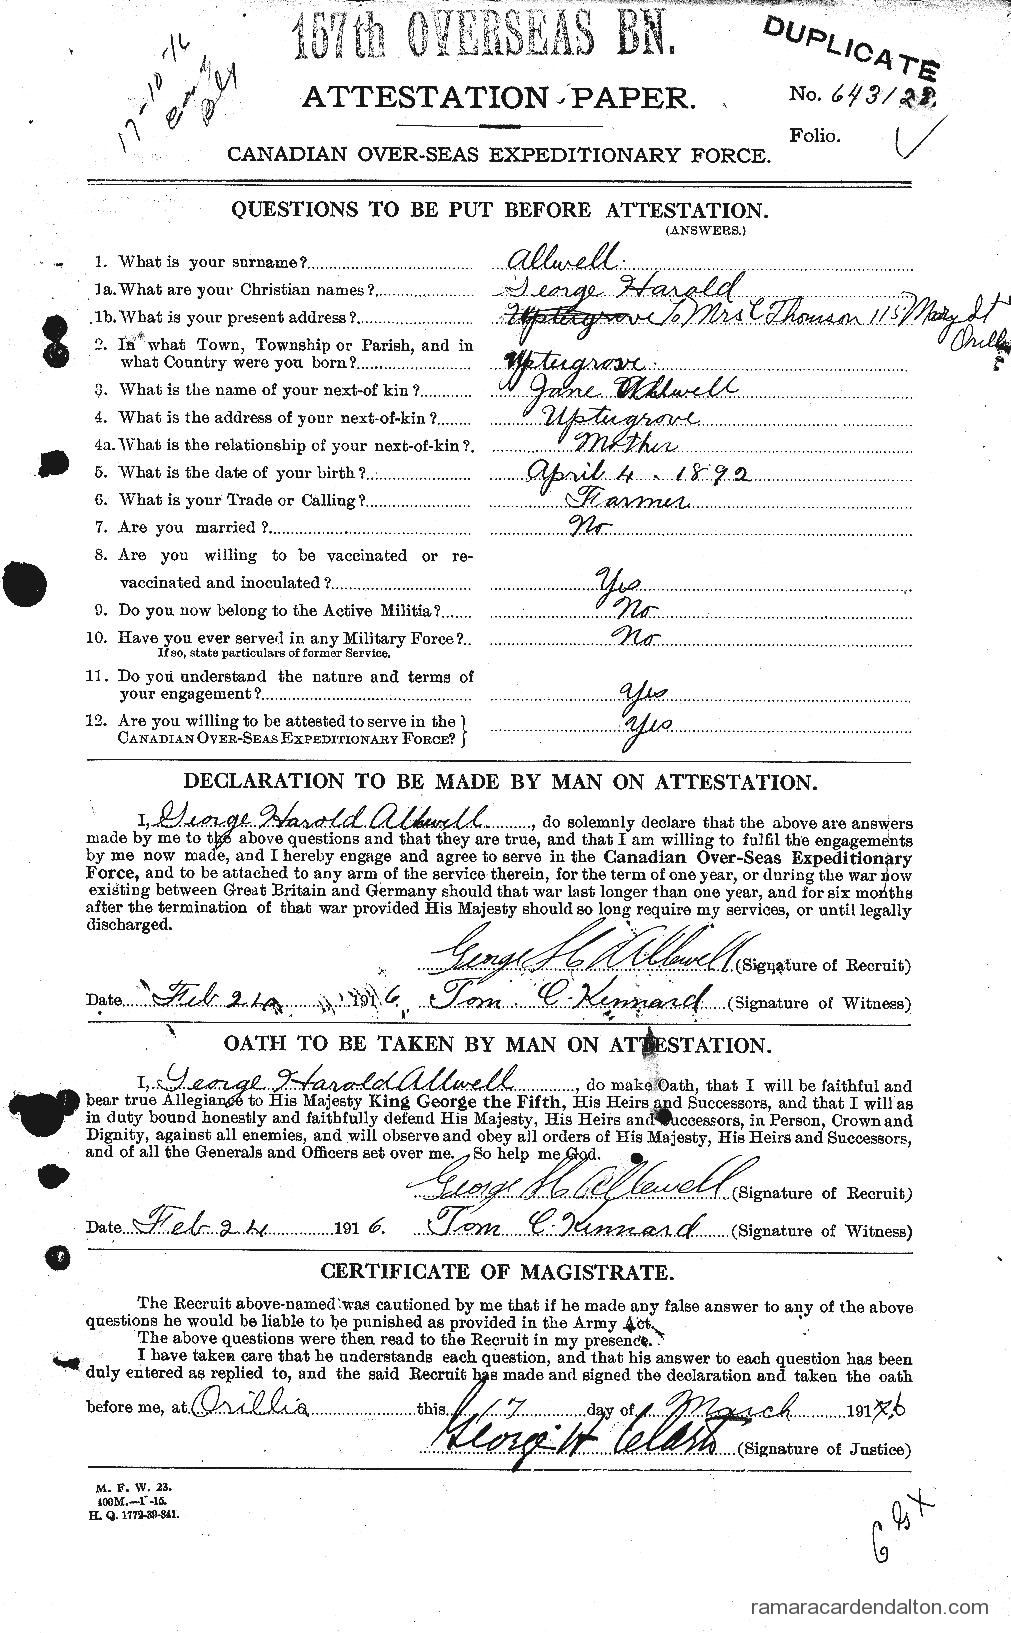 157th OVERSEAS BN.
DUPLICATE
17-10-16
ATTESTATION PAPER.
No. 643128
Folio.
CANADIAN OVER-SEAS EXPEDITIONARY FORCE.
QUESTIONS TO BE PUT BEFORE ATTESTATION.
(ANSWERS.)
1. What is your surname? Allwell
1a. What are your Christian names? George Harold
1b. What is your present address? Uptergrove To Mrs C Thomson 115 Mary St Orillia
2. In what Town, Township or Parish, and in
what Country were you born? Uptergrove
3. What is the name of your next-of kin? Jane Allwell
4. What is the address of your next-of-kin? Uptergrove
4a. What is the relationship of your next-of-kin? Mother
5. What is the date of your birth? April 4. 1892
6. What is your Trade or Calling? Farmer
7. Are you married? No
8. Are you willing to be vaccinated or re-
vaccinated and inoculated? Yes
9. Do you now belong to the Active Militia? No
10. Have you ever served in any Military Force? No
If so, state particulars of former Service.
11. Do you understand the nature and terms of
your engagement? Yes
12. Are you willing to be attested to serve in the
CANADIAN OVER-SEAS EXPEDITIONARY FORCE? Yes
DECLARATION TO BE MADE BY MAN ON ATTESTATION.
I, George Harold Allwell, do solemnly declare that the above are answers
made by me to the above questions and that they are true, and that I am willing to fulfil the engagements
by me now made, and I hereby engage and agree to serve in the Canadian Over-Seas Expeditionary
Force, and to be attached to any arm of the service therein, for the term of one year, or during the war now
existing between Great Britain and Germany should that war last longer than one year, and for six months
after the termination of that war provided His Majesty should so long require my services, or until legally
discharged.
George H Allwell (Signature of Recruit)
Date Feb 24 1916 Tom C. Kinnard (Signature of Witness)
OATH TO BE TAKEN BY MAN ON ATTESTATION.
I, George Harold Allwell, do make Oath, that I will be faithful and
bear true Allegiance to His Majesty King George the Fifth, His Heirs and Successors, and that I will as
in duty bound honestly and faithfully defend His Majesty, His Heirs and Successors, in Person, Crown and
Dignity, against all enemies, and will observe and obey all orders of His Majesty, His Heirs and Successors,
and of all the Generals and Officers set over me. So help me God.
George H Allwell (Signature of Recruit)
Date Feb 24 1916. Tom C. Kinnard (Signature of Witness)
CERTIFICATE OF MAGISTRATE.
The Recruit above-named was cautioned by me that if he made any false answer to any of the above
questions he would be liable to be punished as provided in the Army Act.
The above questions were then read to the Recruit in my presence.
I have taken care that he understands each question, and that his answer to each question has been
duly entered as replied to, and the said Recruit has made and signed the declaration and taken the oath
before me, at Orillia this 17 day of March 1916
George H Clark (Signature of Justice)
M. F. W. 23.
H. Q. 1772-39-841.
ramaracardendalton.com